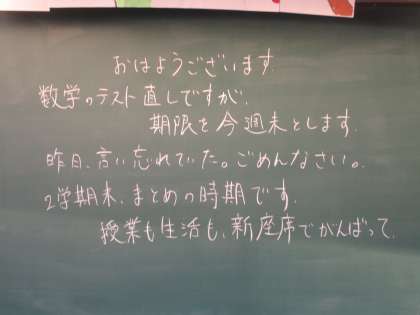 おはようございます。
数学のテスト直しですが、
期限を今週末とします。
昨日、言い忘れていた。ごめんなさい。
2学期末、まとめの時期です。
授業も生活も、新座席でがんばって。